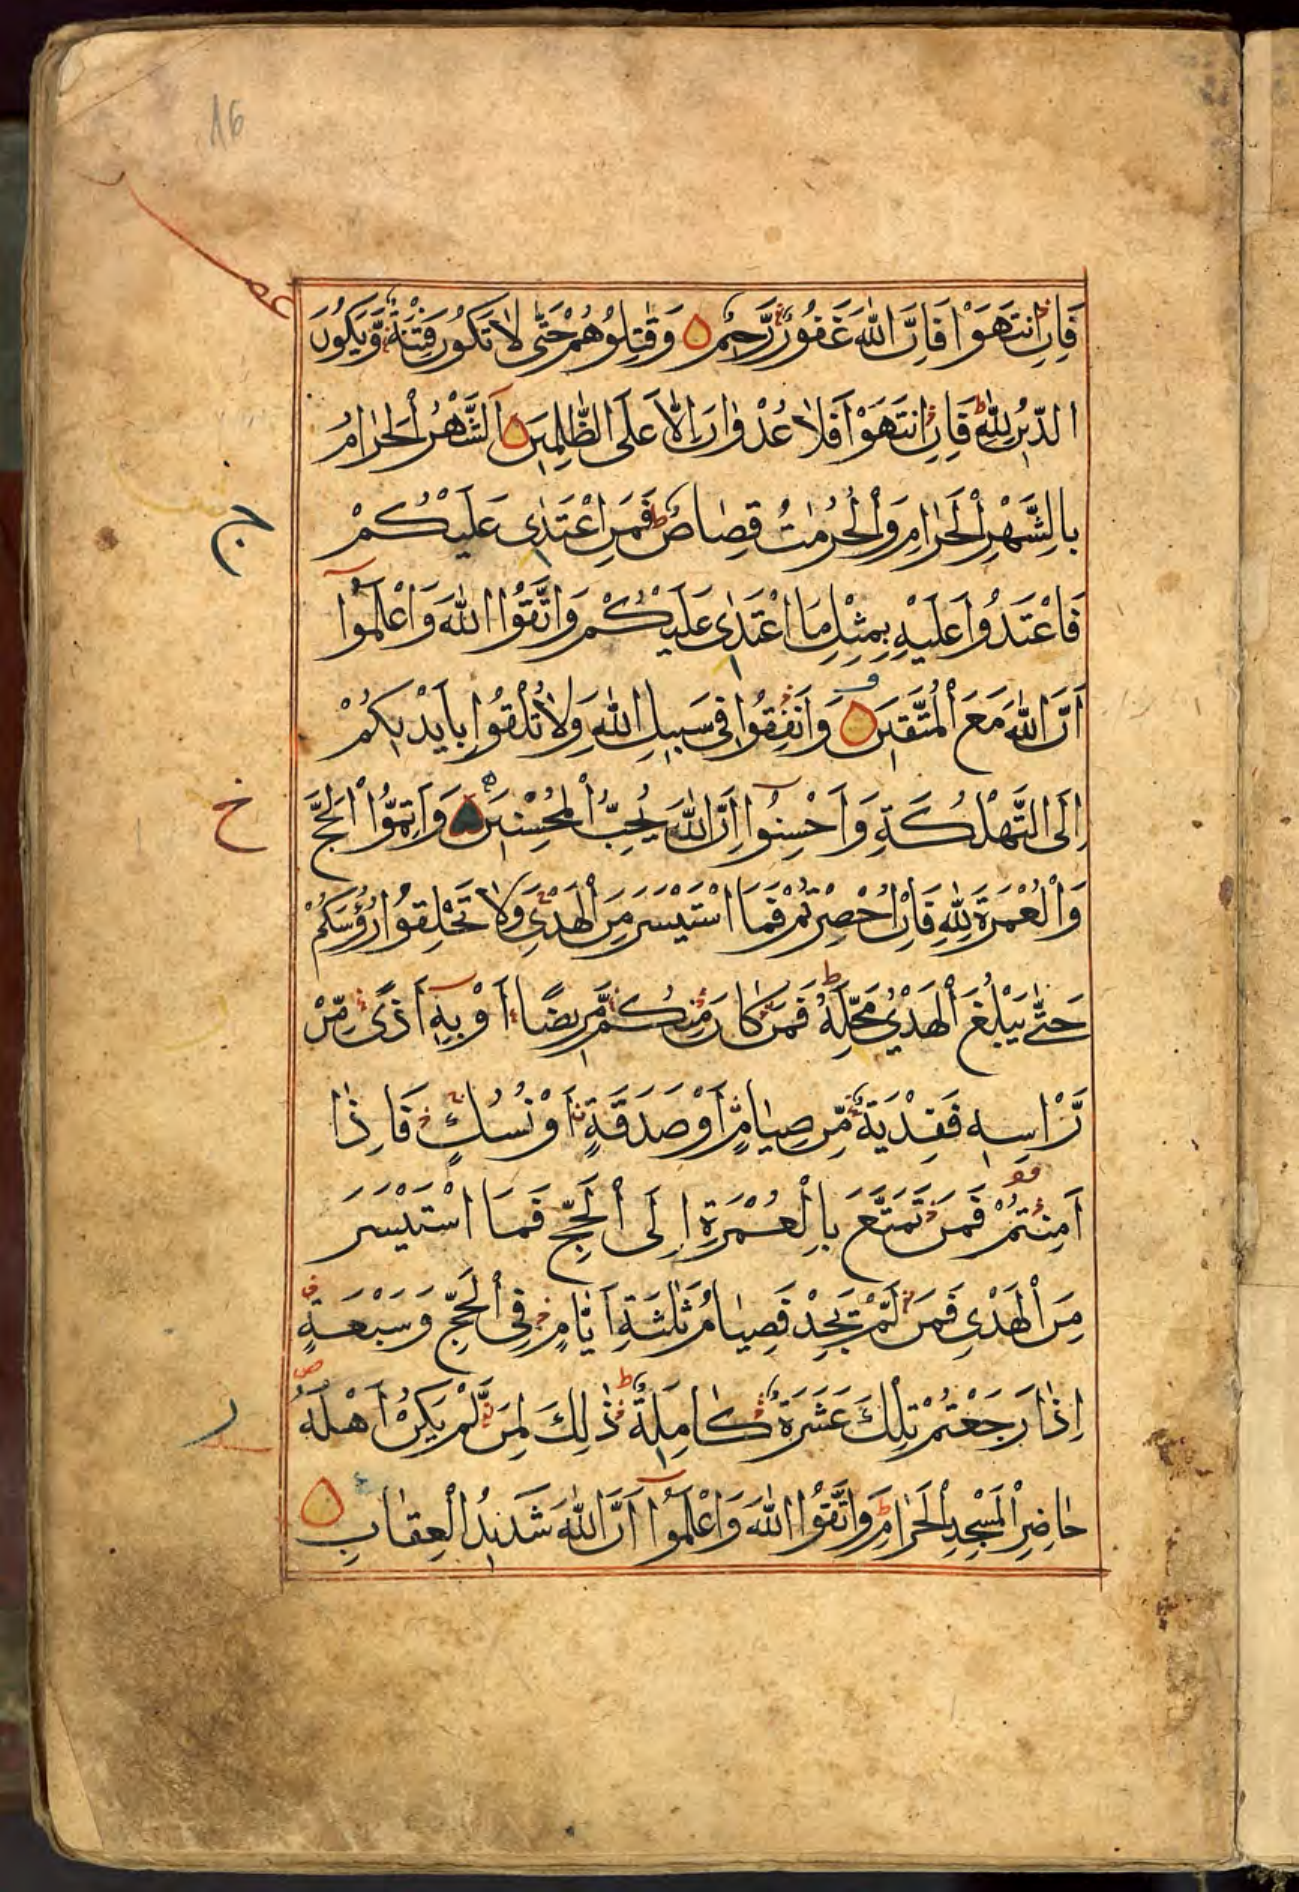 16
عشر
فَاِنِ انْتَهَوْا فَاِنَّ اللّٰهَ غَفُوْرٌ رَّحِيْمٌ وَقٰتِلُوْهُمْ حَتّٰى لَا تَكُوْنَ فِتْنَةٌ وَّيَكُوْنَ
الدِّيْنُ لِلّٰهِ ط فَاِنِ انْتَهَوْا فَلَا عُدْوَانَ اِلَّا عَلَى الظّٰلِمِيْنَ اَلشَّهْرُ الْحَرَامُ
بِالشَّهْرِ الْحَرَامِ وَالْحُرُمٰتُ قِصَاصٌ ط فَمَنِ اعْتَدٰى عَلَيْكُمْ
ج
فَاعْتَدُوْا عَلَيْهِ بِمِثْلِ مَا اعْتَدٰى عَلَيْكُمْ وَاتَّقُوا اللّٰهَ وَاعْلَمُوْٓا
اَنَّ اللّٰهَ مَعَ الْمُتَّقِيْنَ وَاَنْفِقُوْا فِيْ سَبِيْلِ اللّٰهِ وَلَا تُلْقُوْا بِاَيْدِيْكُمْ
اِلَى التَّهْلُكَةِ وَاَحْسِنُوْٓا اِنَّ اللّٰهَ يُحِبُّ الْمُحْسِنِيْنَ وَاَتِمُّوا الْحَجَّ
خ
وَالْعُمْرَةَ لِلّٰهِ فَاِنْ اُحْصِرْتُمْ فَمَا اسْتَيْسَرَ مِنَ الْهَدْىِ وَلَا تَحْلِقُوْا رُؤُسَكُمْ
حَتّٰى يَبْلُغَ الْهَدْىُ مَحِلَّهٗ ط فَمَنْ كَانَ مِنْكُمْ مَّرِيْضًا اَوْ بِهٖٓ اَذًى مِّنْ
رَّاْسِهٖ فَفِدْيَةٌ مِّنْ صِيَامٍ اَوْ صَدَقَةٍ اَوْ نُسُكٍ فَاِذَا
اَمِنْتُمْ فَمَنْ تَمَتَّعَ بِالْعُمْرَةِ اِلَى الْحَجِّ فَمَا اسْتَيْسَرَ
مِنَ الْهَدْىِ فَمَنْ لَّمْ يَجِدْ فَصِيَامُ ثَلٰثَةِ اَيَّامٍ فِى الْحَجِّ وَسَبْعَةٍ
اِذَا رَجَعْتُمْ تِلْكَ عَشَرَةٌ كَامِلَةٌ ط ذٰلِكَ لِمَنْ لَّمْ يَكُنْ اَهْلُهٗ
ر
حَاضِرِى الْمَسْجِدِ الْحَرَامِ ط وَاتَّقُوا اللّٰهَ وَاعْلَمُوْٓا اَنَّ اللّٰهَ شَدِيْدُ الْعِقَابِ